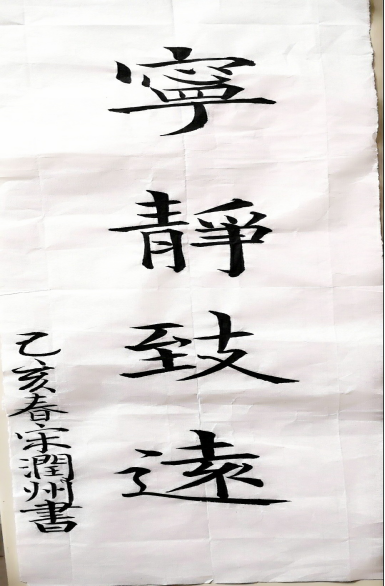 寧靜致遠
乙亥春宋潤州書